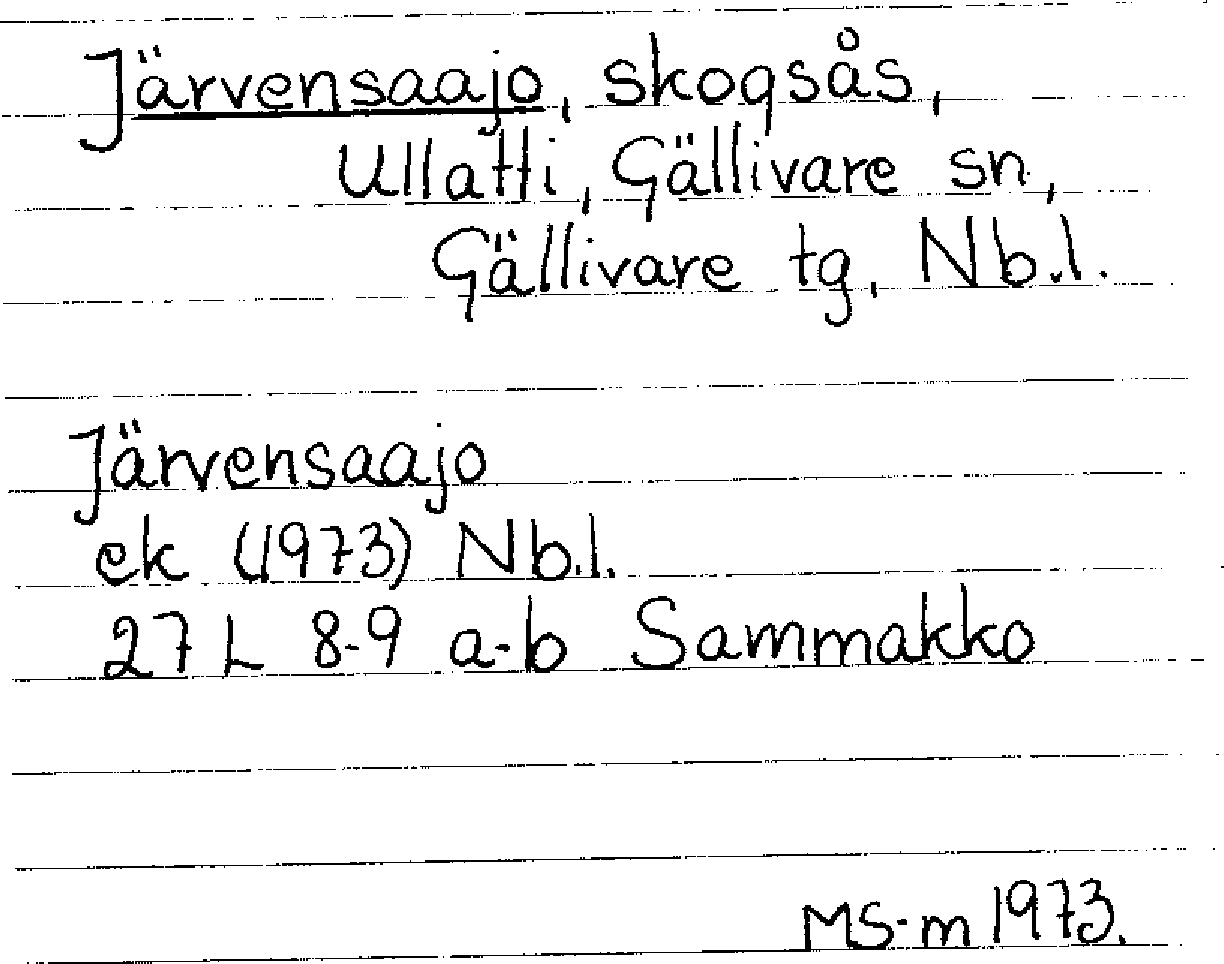 Järvensaajo, skogsås,
Ullatti, Gällivare sn,
Gällivare tg, Nb.l.
Järvensaajo
ek (1973) Nb.l.
27 L 8-9 a-b Sammakko
MS-m 1973.